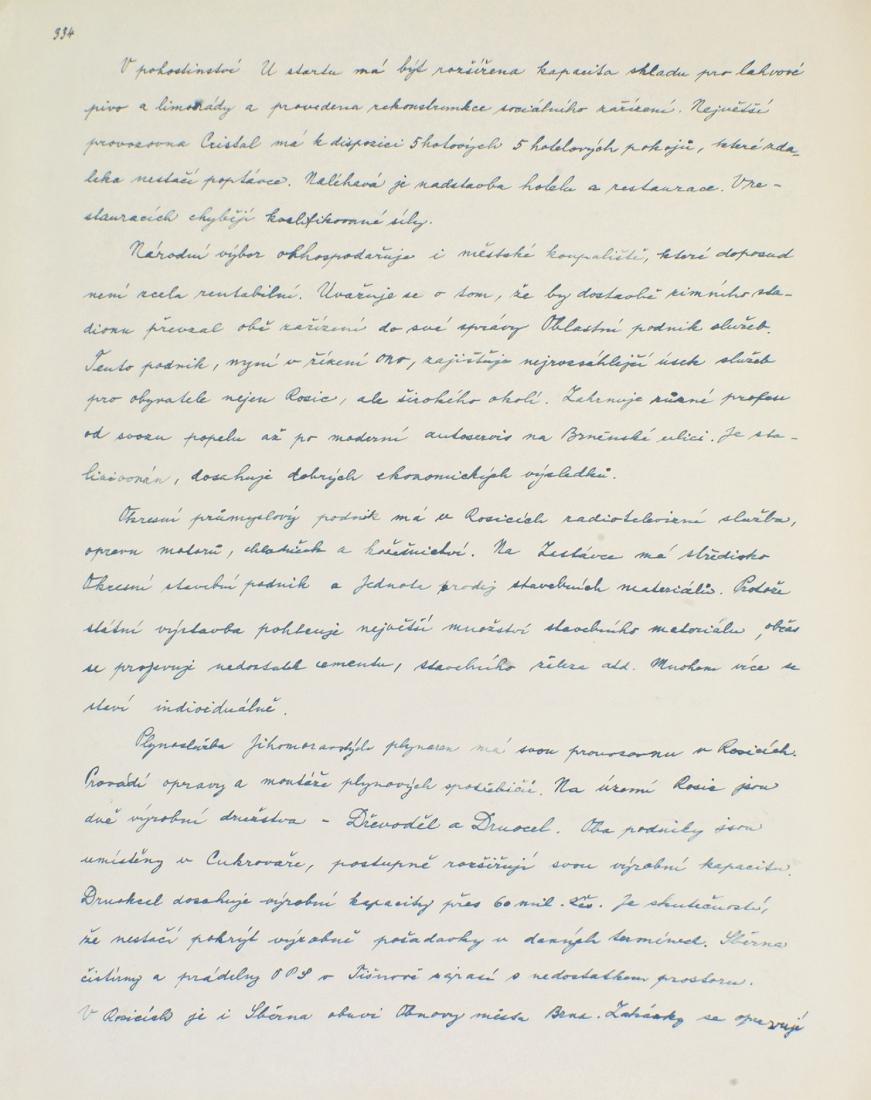 334
V pohostinství U startu má být rozšířena kapacita skladu pro lahvové
pivo a limonády a provedena rekonstrukce sociálního zařízení. Největší
provozovna Cristal má k dispozici 5 hotových 5 hotelových pokojů, které zda-
leka nestačí poptávce. Naléhavá je nadstavba hotelu a restaurace. V re-
stauracích chybějí kvalifikované síly.
Národní výbor obhospodařuje i městské koupaliště, které doposud
není zcela rentabilní. Uvažuje se o tom, že by dostavbě zimního sta-
dionu převzal obě zařízení do své správy Oblastní podnik služeb.
Tento podnik, nyní v řízení ONV, zajišťuje nejrozsáhlejší úsek služeb
pro obyvatele nejen Rosic, ale širokého okolí. Zahrnuje různé profese
od svozu popelu až po moderní autoservis na Brněnské ulici. Je sta-
, dosahuje dobrých ekonomických výsledků.
Okresní průmyslový podnik má v Rosicích radiotelevizní službu,
opravu motorů, chladniček a kožešnictví. Na Zastávce má středisko
Okresní stavební podnik a Jednota prodej stavebních materiálů. Protože
státní výstavba pohlcuje největší množství stavebního materiálu, občas
se projevuje nedostatek cementu, stavebního železa atd. Mnohem více se
staví individuálně.
Plynoslužba Jihomoravských plynaren má svou provozovnu v Rosicích.
Provádí opravy a montáže plynových spotřebičů. Na území Rosic jsou
dvě výrobní družstva - Dřevoděl a Druocel. Oba podniky jsou
umístěny v Cukrovaře, postupně rozšiřují svou výrobní kapacitu.
dosahuje výrobní kapacity přes 60 mil. Kčs. Je skutečností,
že nestačí pokrýt výrobně požadavky v daných termínech. Sběrna
čistírny a prádelny OPS v Tišnově zápasí s nedostatkem prostoru.
V Rosicích je i Sběrna obuvi Obnovy města Brna. Zakázky se opravují